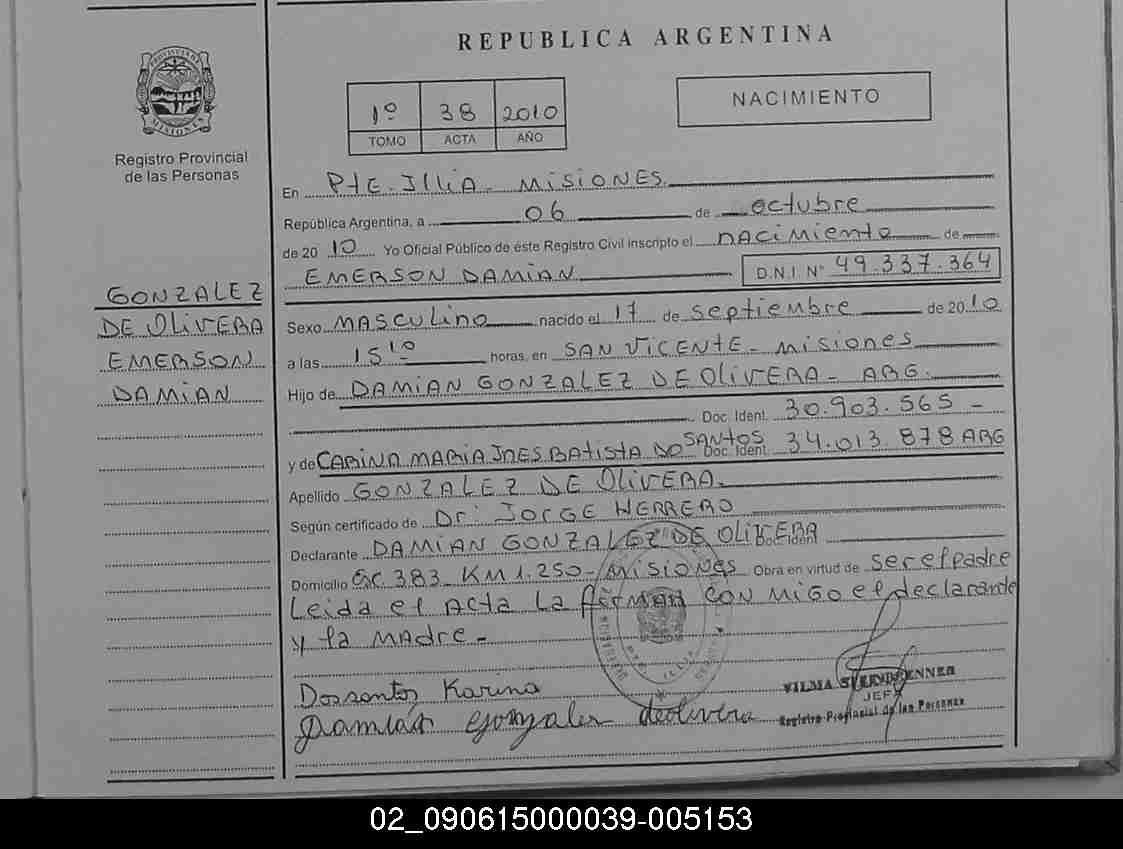 REPUBLICA ARGENTINA
PROVINCIA DE MISIONES
Registro Provincial
de las Personas
1º 38 2010
TOMO ACTA AÑO
NACIMIENTO
En Pte. Illia - Misiones.
República Argentina, a 06 de octubre
de 2010 Yo Oficial Público de éste Registro Civil inscripto el nacimiento de
EMERSON DAMIAN D.N.I. Nº 49.337.364
GONZALEZ
DE OliVERA
EMERSON
DAMIAN
Sexo MASculino nacido el 17 de septiembre de 2010
a las 15 10 horas, en SAN VICENTE - Misiones
Hijo de DAMIAN GONZALEZ DE OliVERA - ARG.
Doc. Ident. 30.903.565 -
y de CARINA MARIA INES BATISTA DO SANTOS Doc. Ident. 34.013.878 ARG
Apellido GONZALEZ DE OliVERA.
Según certificado de Dr. JORGE HERRERO
Declarante DAMIAN GONZALEZ DE OliVERA Doc. Ident.
Domicilio 383 - KM 1.250 - Misiones Obra en virtud de ser el padre
Leida el Acta la firman con migo el declarande
y la MADRE -
Dossantos Karina
Damián Gonzalez deolivera
VILMA
JEFA
Registro Provincial de las Personas
02_090615000039-005153